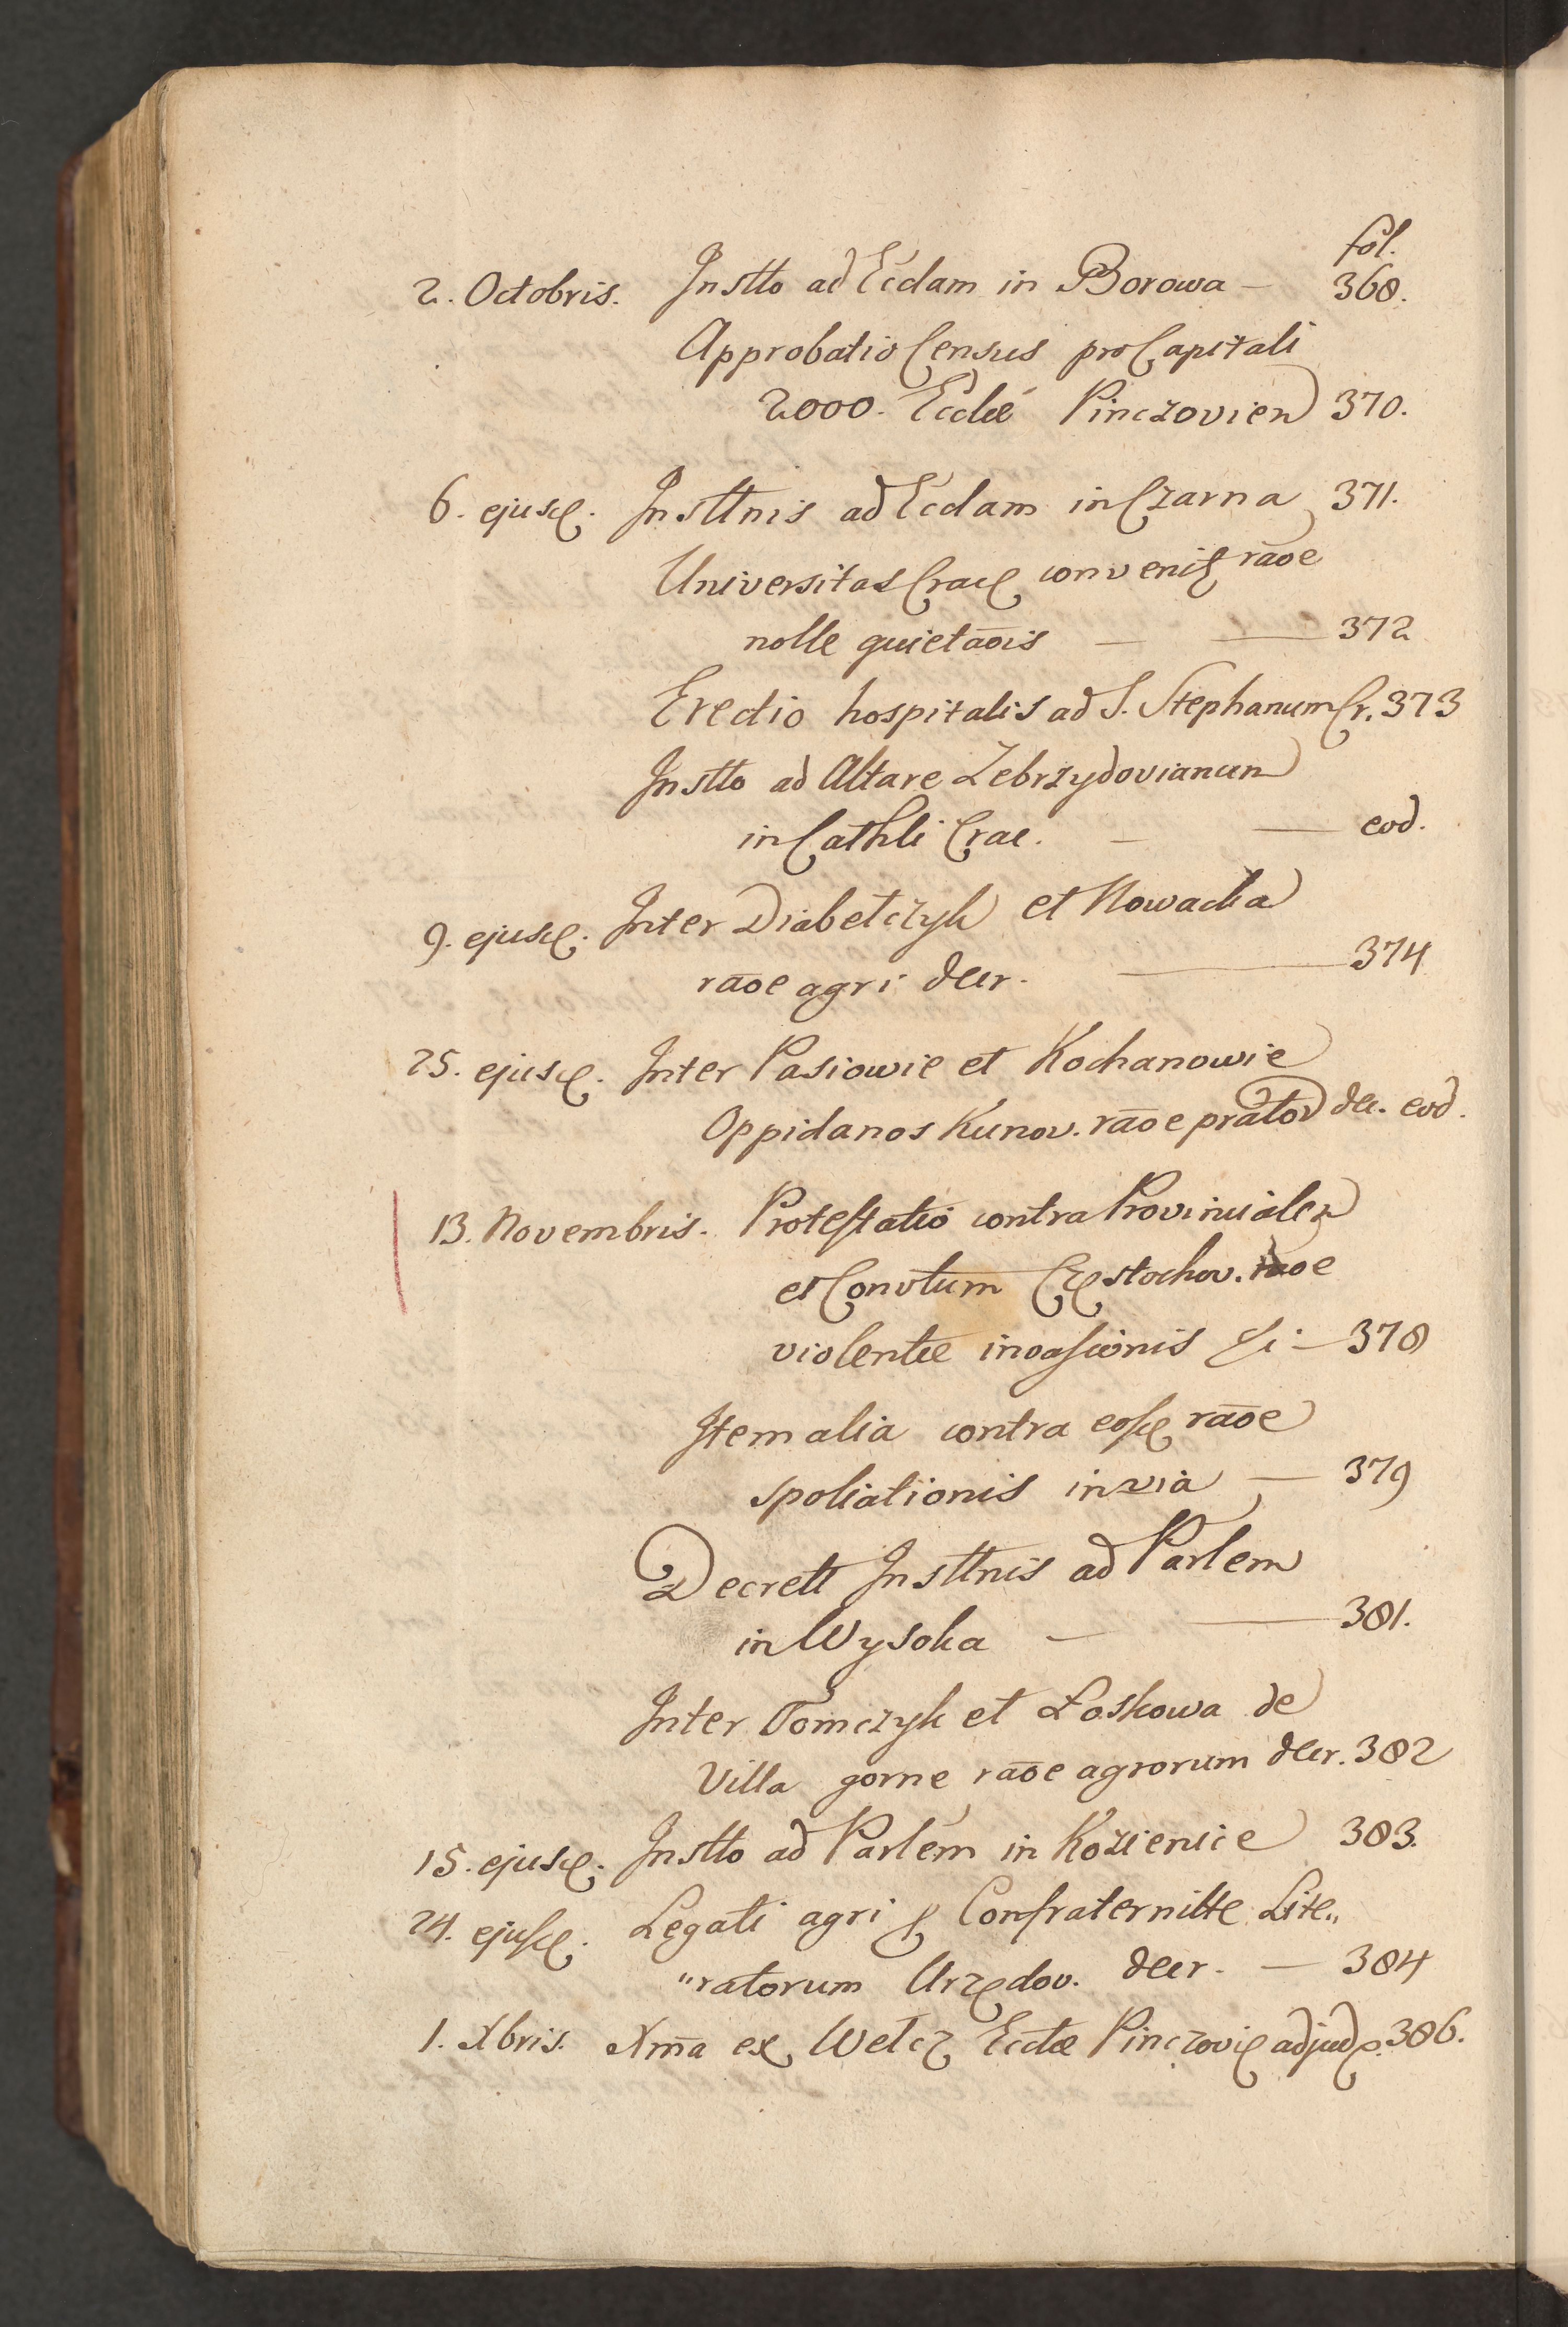 fol.
2. Octobris. Instto ad Eccłam in Borowa — 368.
Approbatio Census pro Capitali
2000. Eccłæ Pinczovien 370.
6. ejusd. Insttnis ad Eccłam in Czarna 371.
Universitas Crac. convenit rāoe
nolle quietaōis — — 372
Erectio hospitalis ad S. Stephanum Cr. 373
Instto ad Altare Zebrzydovianum
in Cathli Crac. — — eod.
9. ejusd. Inter Diabełczyk et Nowacka
rāoe agri decr. — 374
25. ejusd. Inter Pasiowie et Kochanowie
Oppidanos Kunov. rāoe prator dec. eod.
13. Novembris. Protestatio contra Provincialem
et Convtum Częstochov. rāoe
violentæ invasionis &c: — 378
Item alia contra eosd. rāoe
spoliationis in via — 379
Decrett Insttnis ad Parlem
in Wysoka — — 381.
Inter Tomczyk et Łoskowa de
Villa gorne rāoe agrorum decr. 382
15. ejusd. Instto ad Parlem in Kozienice 383.
24. ejusd. Legati agri p Confraternitte Lite„
"ratorum Urzędov. decr. — 384
1. Xbris. Xma ex Wełcz Eccłæ Pinczovię adjud. 386.